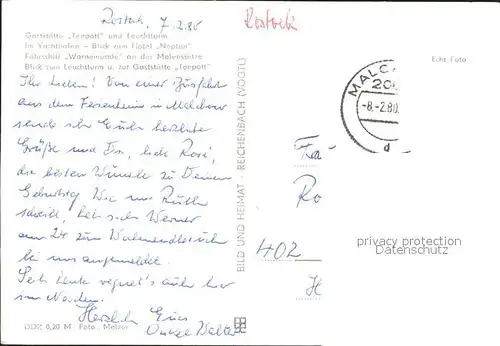 Rostock, 7.2.80
Rostock
Gaststätte „Teepott" und Leuchtturm
Im Yachthafen - Blick zum Hotel „Neptun"
Fährschiff „Warnemünde" an der Malensatre
Blick zum Leuchtturm u. zur Gaststätte „Teepott"
Echt Foto
MALC
20
-8.-2.80.
d
Ihr Lieben! Von einer Ausfahrt
aus dem Ferienheim in Malchow
sende ich Euch herzliche
Grüße und Dir, liebe Rosi,
die besten Wünsche zu Deinem
Geburtstag. Wie uns Ruth
schreibt, hat sich Werner
am 24. zum Wochenendbesuch
bei uns angemeldet.
Seit heute regnet's auch hier
im Norden.
Herzlich Euer
Onkel Walter
BILD UND HEIMAT · REICHENBACH (VOGTL)
Ro
402
H
privacy protection
Datenschutz
DDR 0,20 M Foto: Melzer